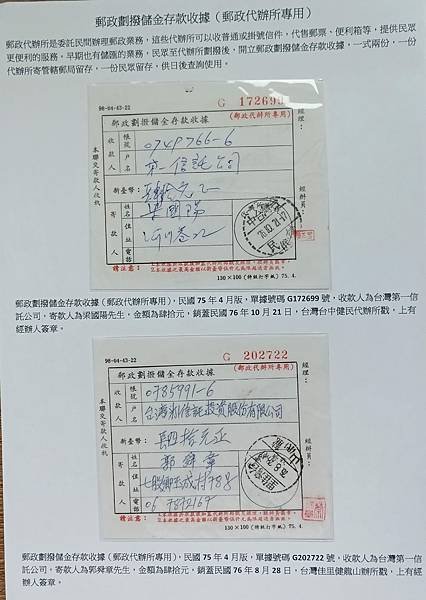 郵政劃撥儲金存款收據（郵政代辦所專用）
郵政代辦所是委託民間辦理郵政業務，這些代辦所可以收普通或掛號信件，代售郵票、便利箱等，提供民眾
更便利的服務。早期也有儲匯的業務，民眾至代辦所劃撥後，開立郵政劃撥儲金存款收據，一式兩份，一份
代辦所寄管轄郵局留存，一份民眾留存，供日後查詢使用。
98-04-43-22
G 172699
郵政劃撥儲金存款收據
(郵政代辦所專用)
收款人
帳號
0749766-6
戶名
第一信託公司
新臺幣：
肆拾元正
寄款人
姓名
梁國陽
住址
電話
本聯交寄款人收執
經理：
經辦員：
76.10.21
請注意：
130×100 (特級打字紙) 75.4.
郵政劃撥儲金存款收據（郵政代辦所專用），民國 75 年 4 月版，單據號碼 G172699 號，收款人為台灣第一信
託公司，寄款人為梁國陽先生，金額為肆拾元，銷蓋民國 76 年 10 月 21 日，台灣台中健民代辦所戳，上有
經辦人簽章。
98-04-43-22
G 202722
郵政劃撥儲金存款收據
(郵政代辦所專用)
收款人
帳號
0785991-6
戶名
台灣第一信託投資股份有限公司
新臺幣：
肆拾元正
寄款人
姓名
郭舜章
住址
七股鄉玉成村788
電話
06 7872169
本聯交寄款人收執
經理：
經辦員：
請注意：
130×100 (特級打字紙) 75.4.
郵政劃撥儲金存款收據（郵政代辦所專用），民國 75 年 4 月版，單據號碼 G202722 號，收款人為台灣第一信
託公司，寄款人為郭舜章先生，金額為肆拾元，銷蓋民國 76 年 8 月 28 日，台灣佳里健龍山辦所戳，上有經
辦人簽章。